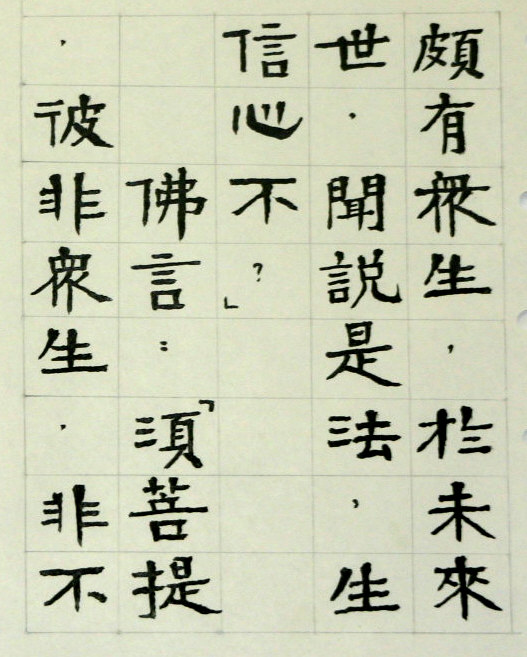 頗有眾生，於未來
世．聞說是法，生
信心不？」
佛言：「須菩提
．彼非眾生．非不